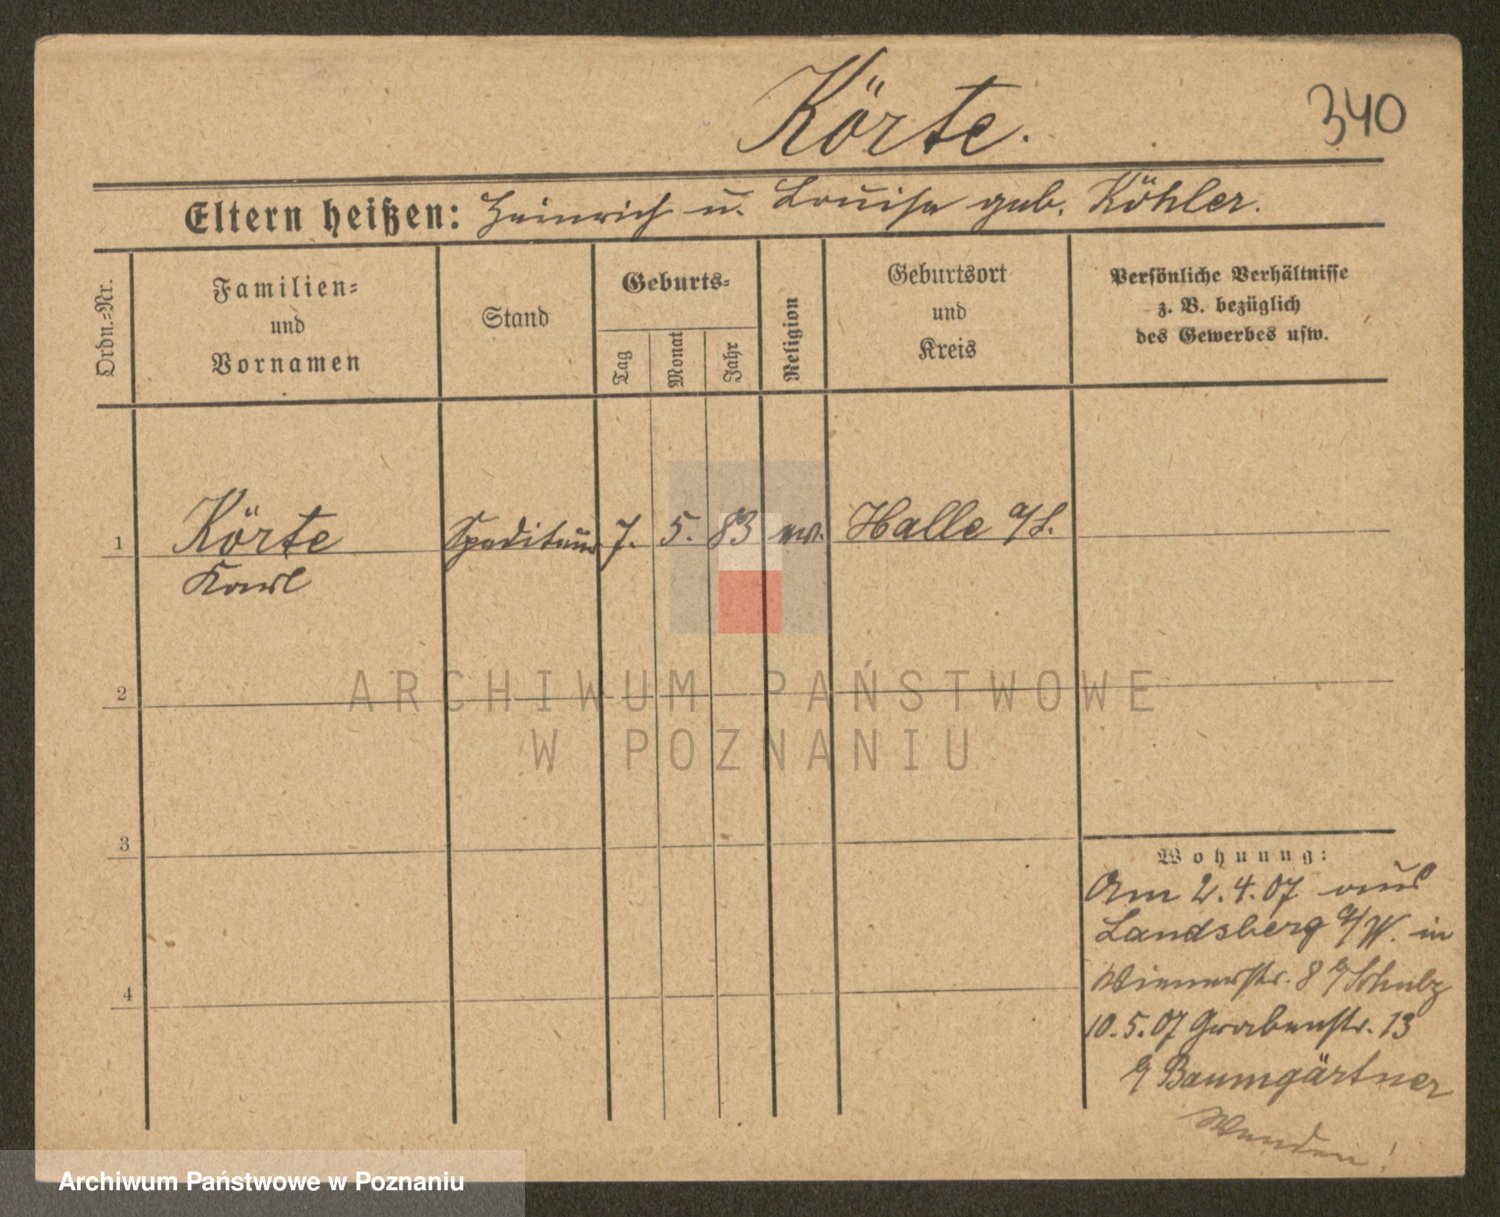 Körte.
340
Eltern heißen: Heinrich u. Louise geb. Köhler.
Ordn.-Nr.
Familien-
und
Vornamen
Stand
Geburts-
Tag
Monat
Jahr
Religion
Geburtsort
und
Kreis
Persönliche Verhältnisse
z. B. bezüglich
des Gewerbes usw.
1 Körte Spediteur 7. 5. 83 ev. Halle a/S.
Karl
2
ARCHIWUM PAŃSTWOWE
W POZNANIU
3
Wohnung:
Am 2.4.07 aus
Landsberg a/W. in
Wienerstr. 8 b/Schulz
4
10.5.07 Grabenstr. 13
b/ Baumgärtner
Wenden!
Archiwum Państwowe w Poznaniu